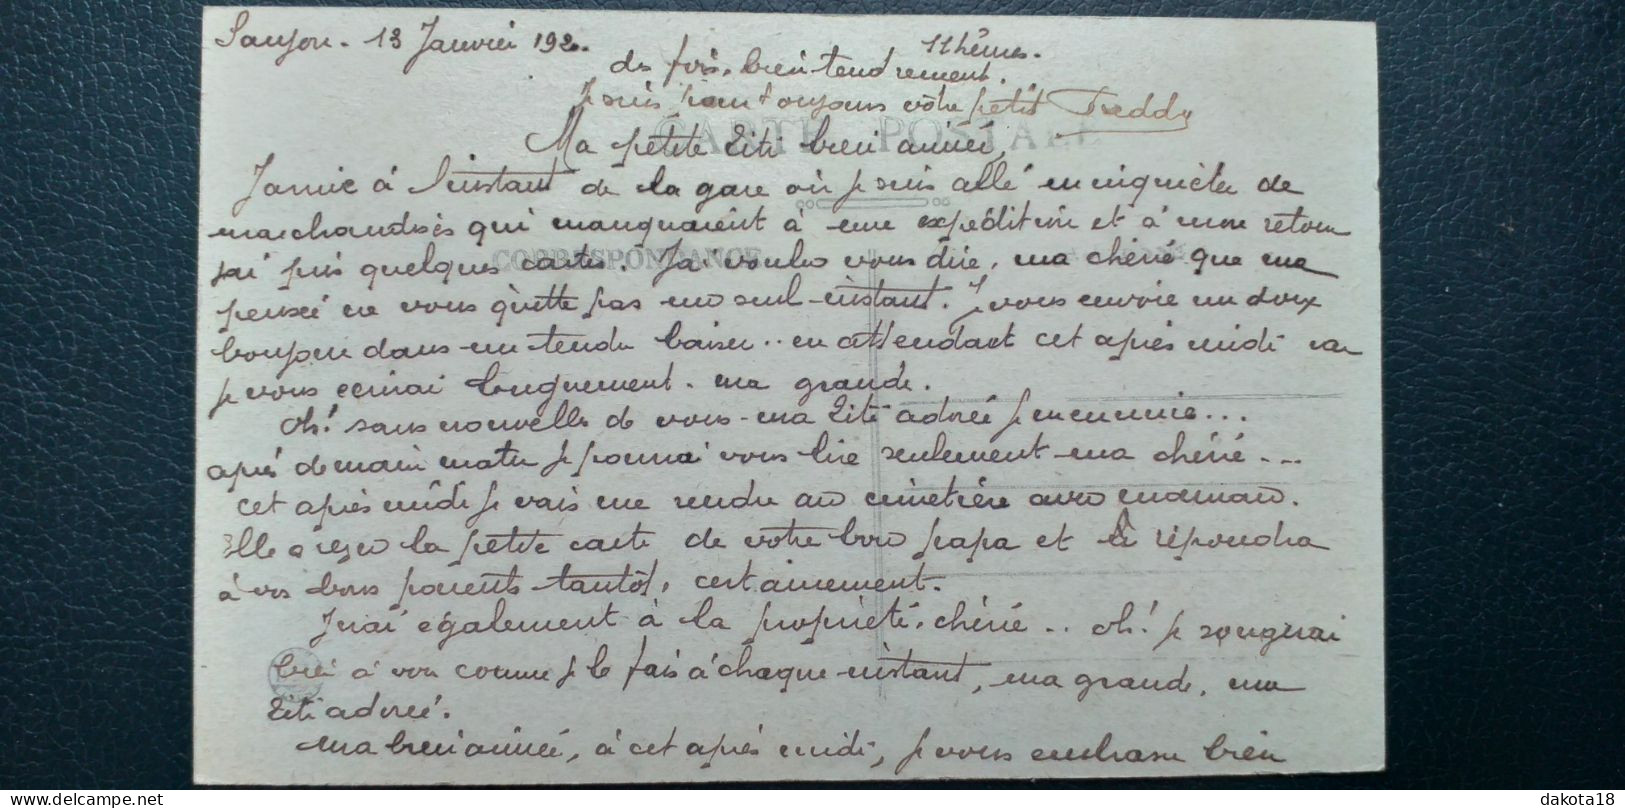 Saujon. 13 Janvier 192.
11 heures.
des fois, bien tendrement.
Je suis pour toujours vôtre petit Freddy
CARTE POSTALE
Ma pétite Ziti bien aimée,
J'arrive à l'instant de la gare où je suis allé m'enquièter de
marchandises qui manquaient à une expédition et à mon retour
j'ai pris quelques cartes. J'ai voulu vous dire, ma chérie que ma
CORRESPONDANCE
pensée ne vous quitte pas un seul instant. Je vous envoie un doux
bonjour dans un tendre baiser.. en attendant cet après midi car
je vous écrirai longuement. ma grande.
Oh! sans nouvelle de vous ma Ziti adorée je m'ennuie...
après demain matin je pourrai vous lire seulement ma chérie...
cet après midi je vais me rendre au cimetière avec maman.
Elle a reçu la petite carte de votre bon papa et répondra
à vos bons parents tantôt, certainement.
J'irai également à la propriété, chérie.. Oh! je songerai
bien à vous comme je le fais à chaque instant, ma grande, ma
Ziti adorée.
Ma bien aimée, à cet après midi, je vous embrasse bien
delcampe.net
dakota18